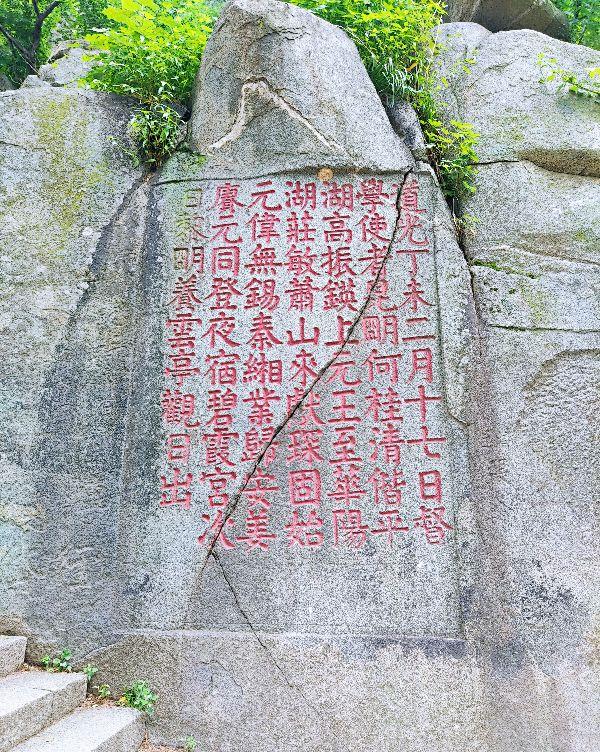 道光丁未二月十七日督
學使者昆明何桂清偕平
湖高振鍈上元王至華陽
湖莊敏蕭山來獻琛固始
元偉無錫秦緗業歸安姜
麐元同登夜宿碧霞宮次
日黎明養雲亭觀日出